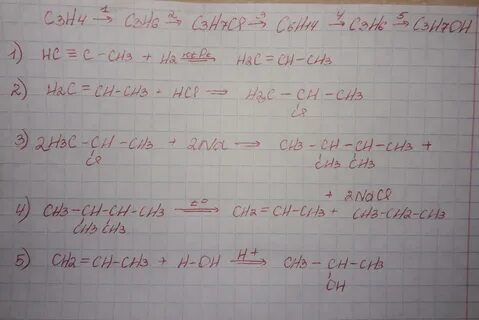 C3H4 1→ C3H6 2→ C3H7Cl 3→ C6H14 4→ C3H6 5→ C3H7OH
1) HC ≡ C – CH3 + H2 → H2C = CH – CH3
2) H2C = CH – CH3 + HCl → H3C – CH – CH3
Cl
3) 2H3C – CH – CH3 + 2Na → CH3 – CH – CH – CH3 +
Cl CH3 CH3
+ 2NaCl
4) CH3–CH–CH–CH3 t° → CH2 = CH – CH3 + CH3–CH2–CH3
CH3 CH3
5) CH2 = CH – CH3 + H – OH H+ → CH3 – CH – CH3
OH